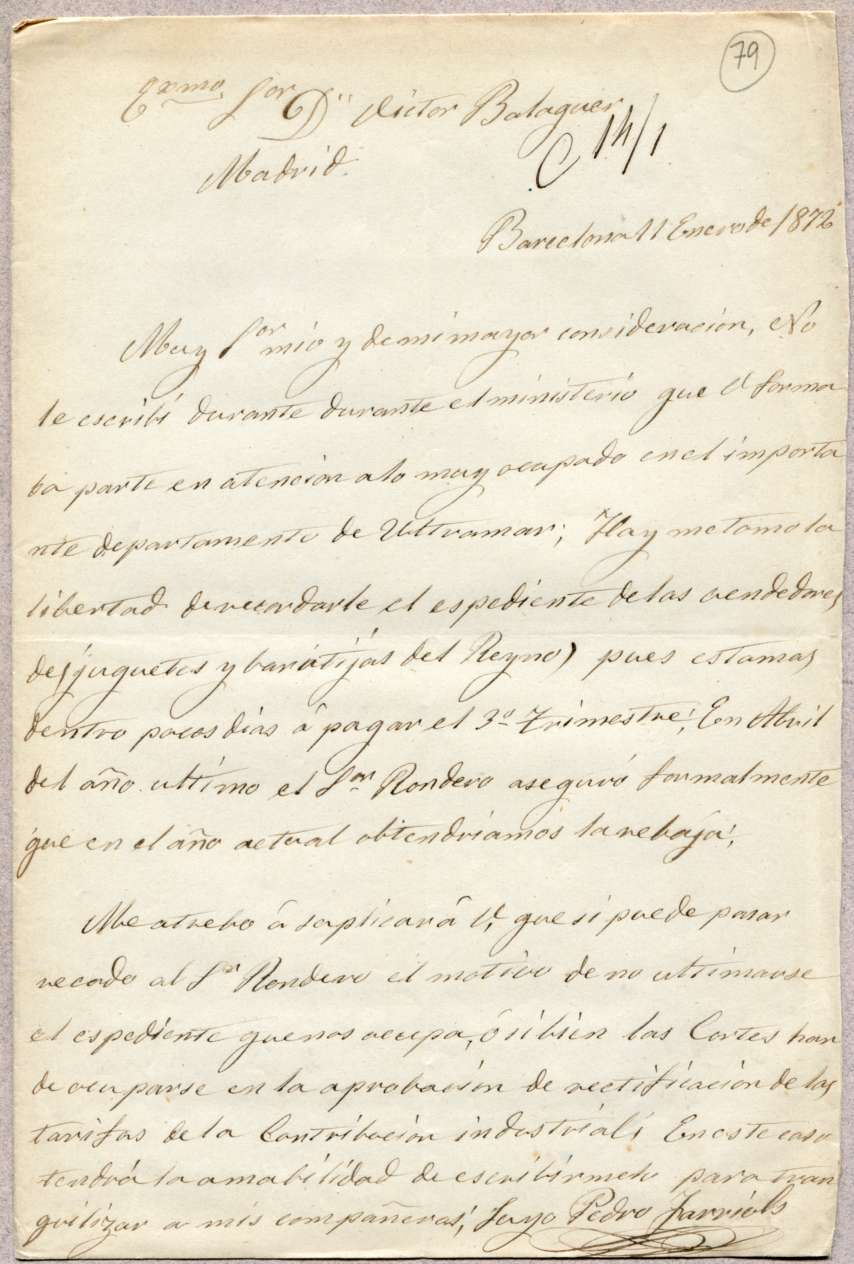 79
Exmo Sor Dn Victor Balaguer
C 14/1
Madrid.
Barcelona 11 Enero de 1872
Muy Sor mio y de mi mayor consideracion, No
le escribi durante durante el ministerio que V forma
ba parte en atencion a lo muy ocupado en el importa
nte departamento de Ultramar; Hay me tomo la
libertad de recordarle el espediente de los vendedores
de (juguetes y baratijas del Reyno) pues estamos
dentro pocos dias á pagar el 3o Trimestre; En Abril
del año ultimo el Sor Rondero aseguró formalmente
que en el año actual obtendriamos la rebaja;
Me atrebo á suplicar á V. que si puede pasar
recado al Sr Rondero el motivo de no ultimarse
el espediente que nos ocupa, ó si bien las Cortes han
de ocuparse en la aprobacion de rectificacion de las
tarifas de la Contribucion industrial; En este caso
tendrá la amabilidad de escribirmelo para tran
quilizar a mis compañeros; Suyo Pedro Farriols